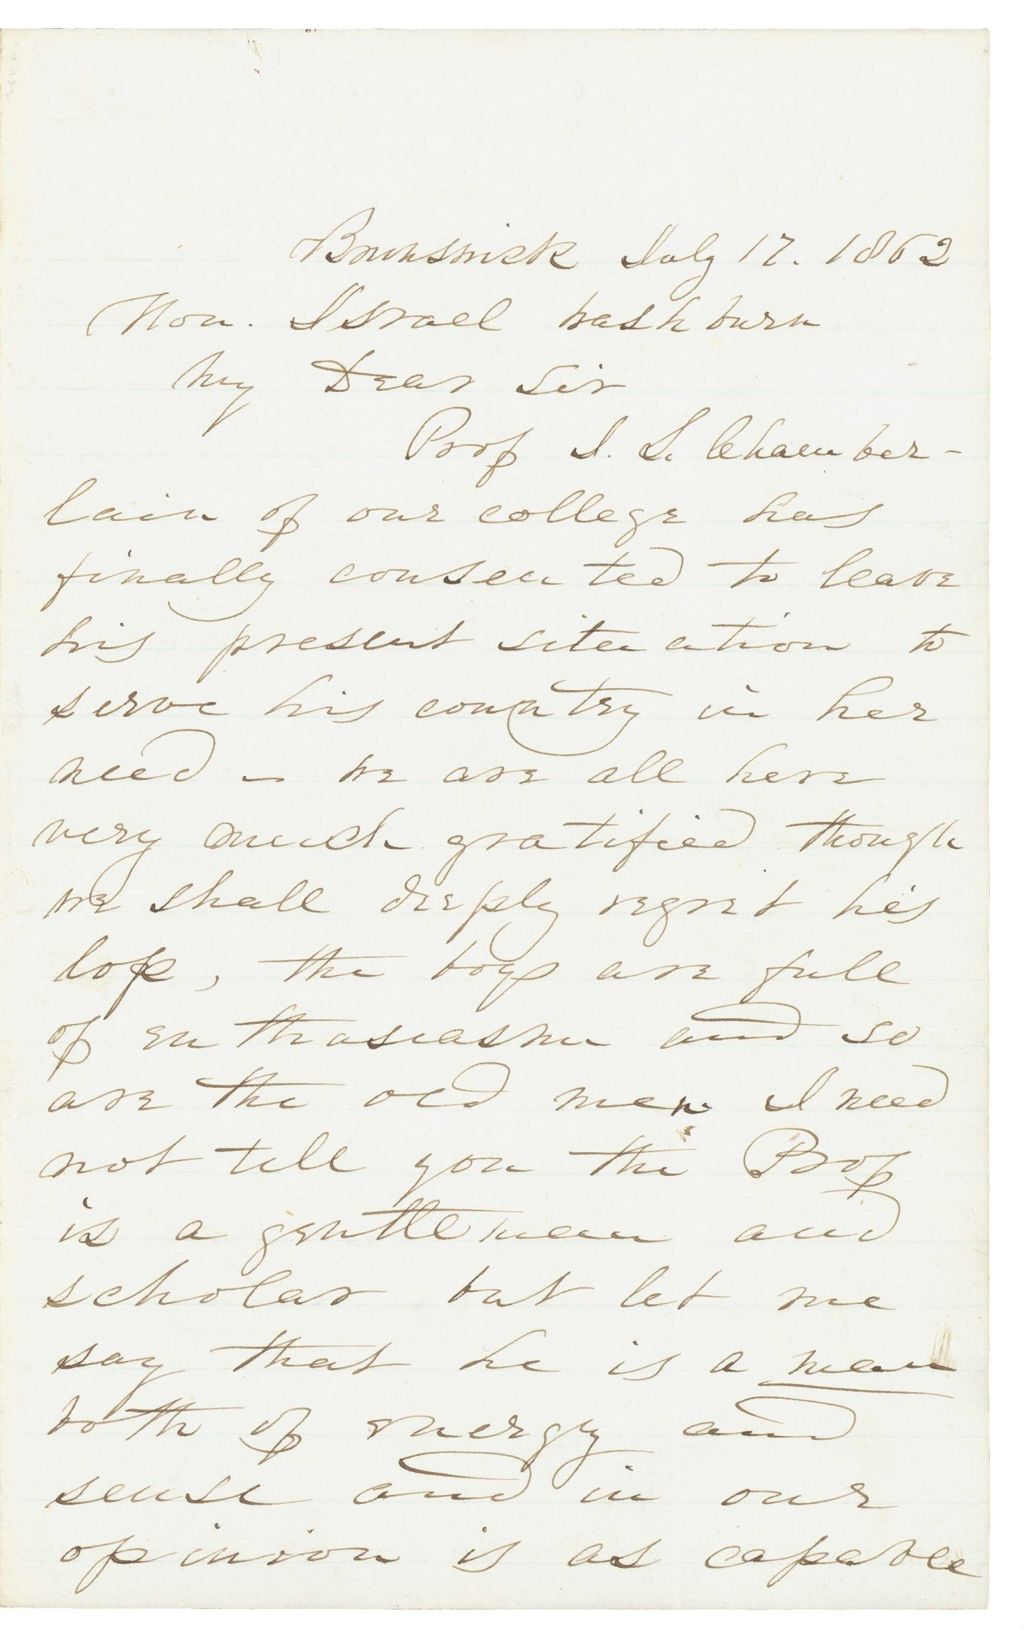 Brunswick July 17. 1862
Hon. Israel Washburn
My Dear Sir
Prof J. L. Chamber-
lain of our college has
finally consented to leave
his present situation to
serve his country in her
need – we are all here
very much gratified though
we shall deeply regret his
loss, the boys are full
of enthusiasm and so
are the old men I need
not tell you the Prof
is a gentleman and
scholar but let me
say that he is a man
both of energy and
sense and in our
opinion is as capable